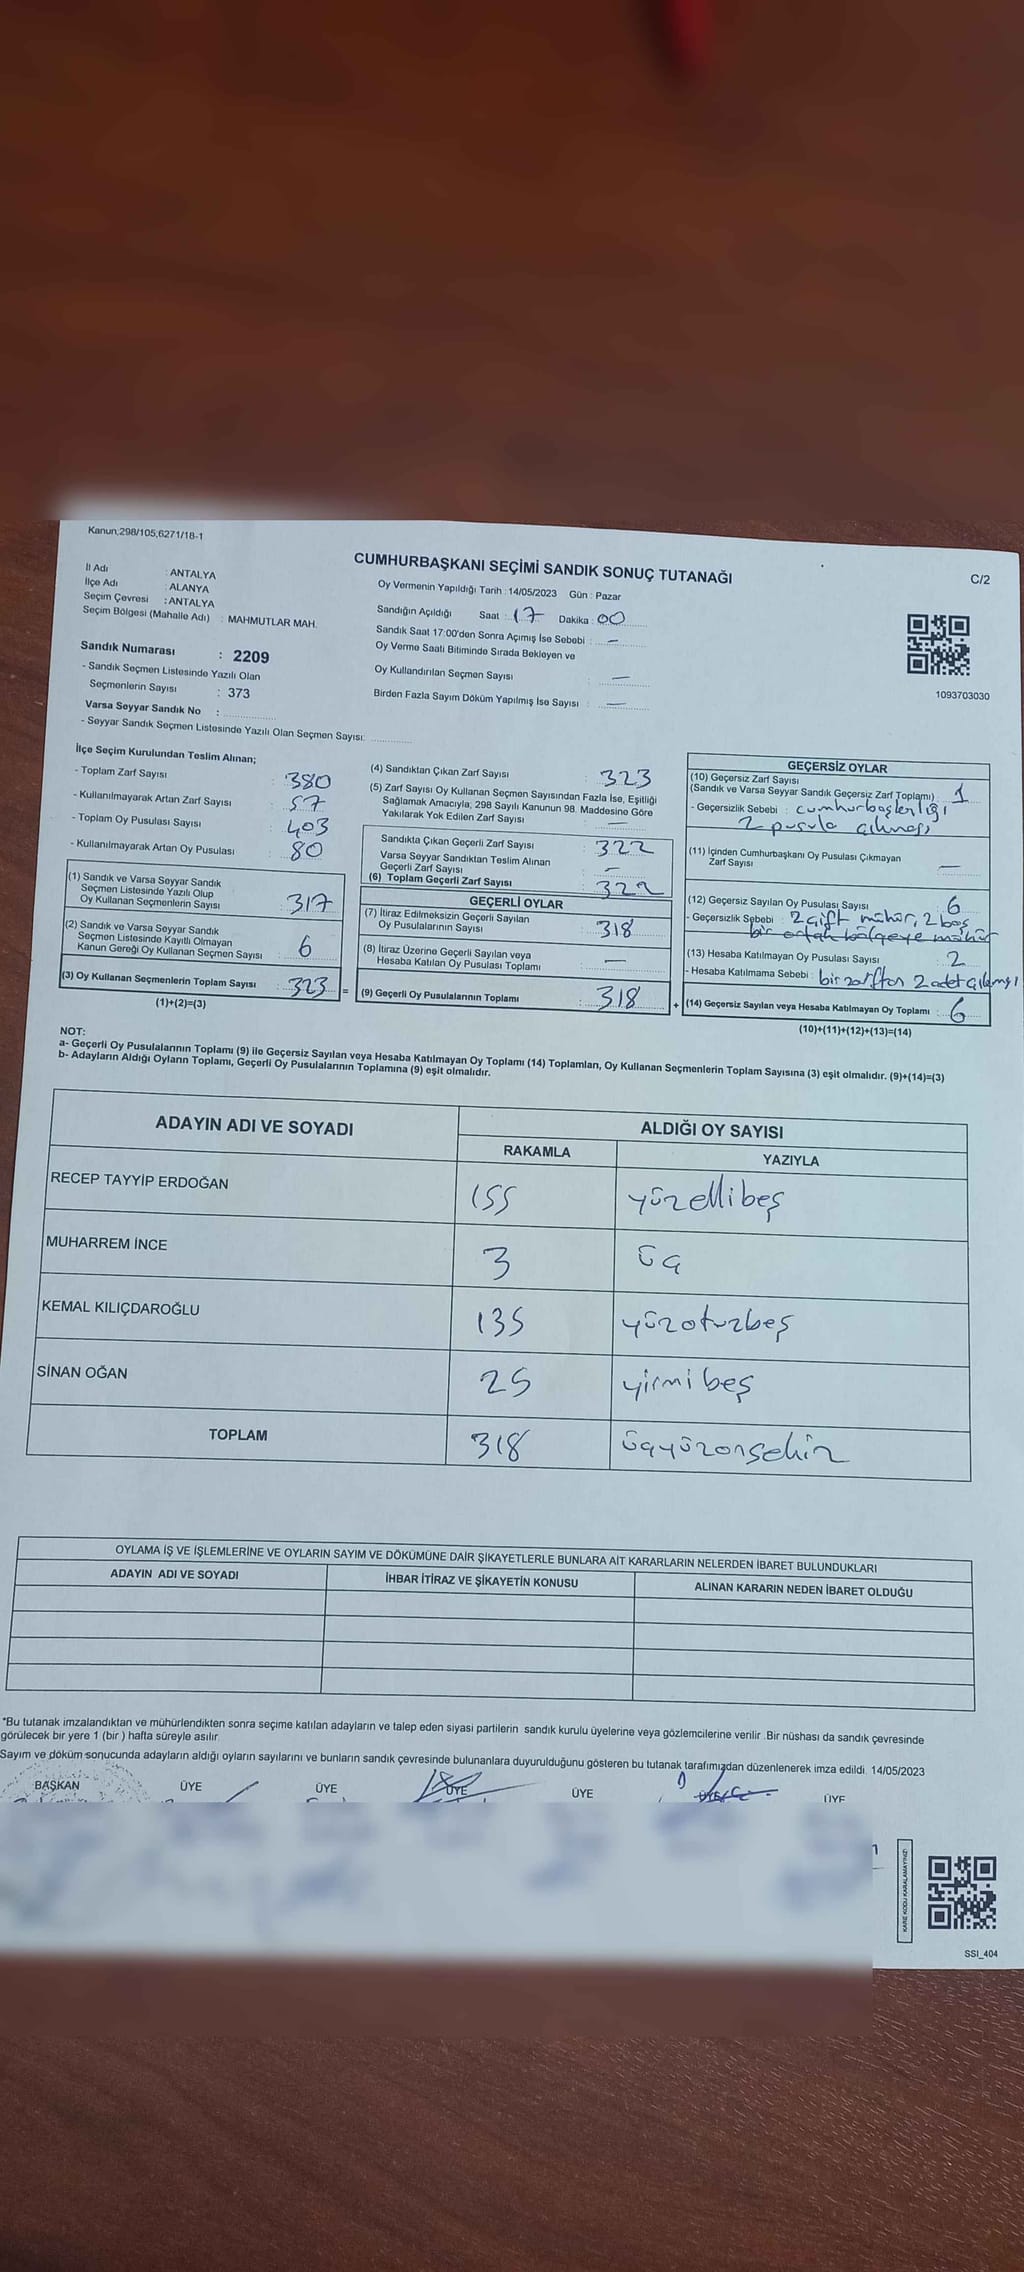 Kanun;298/105;6271/18-1
CUMHURBAŞKANI SEÇİMİ SANDIK SONUÇ TUTANAĞI
C/2
İl Adı : ANTALYA
İlçe Adı : ALANYA
Seçim Çevresi : ANTALYA
Seçim Bölgesi (Mahalle Adı) : MAHMUTLAR MAH.
Oy Vermenin Yapıldığı Tarih : 14/05/2023 Gün : Pazar
Sandığın Açıldığı Saat : 17 Dakika : 00
Sandık Saat 17:00'den Sonra Açımış İse Sebebi : —
Oy Verme Saati Bitiminde Sırada Bekleyen ve
Oy Kullandırılan Seçmen Sayısı : —
Birden Fazla Sayım Döküm Yapılmış İse Sayısı : —
1093703030
Sandık Numarası : 2209
- Sandık Seçmen Listesinde Yazılı Olan
Seçmenlerin Sayısı : 373
Varsa Seyyar Sandık No :
- Seyyar Sandık Seçmen Listesinde Yazılı Olan Seçmen Sayısı:
İlçe Seçim Kurulundan Teslim Alınan;
- Toplam Zarf Sayısı : 380
- Kullanılmayarak Artan Zarf Sayısı : 57
- Toplam Oy Pusulası Sayısı : 403
- Kullanılmayarak Artan Oy Pusulası : 80
(1) Sandık ve Varsa Seyyar Sandık
Seçmen Listesinde Yazılı Olup
Oy Kullanan Seçmenlerin Sayısı : 317
(2) Sandık ve Varsa Seyyar Sandık
Seçmen Listesinde Kayıtlı Olmayan
Kanun Gereği Oy Kullanan Seçmen Sayısı : 6
(3) Oy Kullanan Seçmenlerin Toplam Sayısı : 323 =
(1)+(2)=(3)
(4) Sandıktan Çıkan Zarf Sayısı : 323
(5) Zarf Sayısı Oy Kullanan Seçmen Sayısından Fazla İse, Eşitliği
Sağlamak Amacıyla, 298 Sayılı Kanunun 98. Maddesine Göre
Yakılarak Yok Edilen Zarf Sayısı : —
Sandıkta Çıkan Geçerli Zarf Sayısı : 322
Varsa Seyyar Sandıktan Teslim Alınan
Geçerli Zarf Sayısı : —
(6) Toplam Geçerli Zarf Sayısı : 322
GEÇERLİ OYLAR
(7) İtiraz Edilmeksizin Geçerli Sayılan
Oy Pusulalarının Sayısı : 318
(8) İtiraz Üzerine Geçerli Sayılan veya
Hesaba Katılan Oy Pusulası Toplamı : —
(9) Geçerli Oy Pusulalarının Toplamı : 318 +
GEÇERSİZ OYLAR
(10) Geçersiz Zarf Sayısı
(Sandık ve Varsa Seyyar Sandık Geçersiz Zarf Toplamı) : 1
- Geçersizlik Sebebi : cumhurbaşkanlığı
2 pusula çıkması
(11) İçinden Cumhurbaşkanı Oy Pusulası Çıkmayan
Zarf Sayısı : —
(12) Geçersiz Sayılan Oy Pusulası Sayısı : 6
- Geçersizlik Sebebi : 2 çift mühür, 2 boş
bir ortak bölgeye mühür
(13) Hesaba Katılmayan Oy Pusulası Sayısı : 2
- Hesaba Katılmama Sebebi : bir zarftan 2 adet çıkmış
(14) Geçersiz Sayılan veya Hesaba Katılmayan Oy Toplamı : 6
(10)+(11)+(12)+(13)=(14)
NOT:
a- Geçerli Oy Pusulalarının Toplamı (9) ile Geçersiz Sayılan veya Hesaba Katılmayan Oy Toplamı (14) Toplamları, Oy Kullanan Seçmenlerin Toplam Sayısına (3) eşit olmalıdır. (9)+(14)=(3)
b- Adayların Aldığı Oyların Toplamı, Geçerli Oy Pusulalarının Toplamına (9) eşit olmalıdır.
ADAYIN ADI VE SOYADI ALDIĞI OY SAYISI
RAKAMLA YAZIYLA
RECEP TAYYİP ERDOĞAN 155 yüzellibeş
MUHARREM İNCE 3 üç
KEMAL KILIÇDAROĞLU 135 yüzotuzbeş
SİNAN OĞAN 25 yirmibeş
TOPLAM 318 üçyüzonsekiz
OYLAMA İŞ VE İŞLEMLERİNE VE OYLARIN SAYIM VE DÖKÜMÜNE DAİR ŞİKAYETLERLE BUNLARA AİT KARARLARIN NELERDEN İBARET BULUNDUKLARI
ADAYIN ADI VE SOYADI İHBAR İTİRAZ VE ŞİKAYETİN KONUSU ALINAN KARARIN NEDEN İBARET OLDUĞU
*Bu tutanak imzalandıktan ve mühürlendikten sonra seçime katılan adayların ve talep eden siyasi partilerin sandık kurulu üyelerine veya gözlemcilerine verilir .Bir nüshası da sandık çevresinde
görülecek bir yere 1 (bir ) hafta süreyle asılır.
Sayım ve döküm sonucunda adayların aldığı oyların sayılarını ve bunların sandık çevresinde bulunanlara duyurulduğunu gösteren bu tutanak tarafımızdan düzenlenerek imza edildi. 14/05/2023
BAŞKAN ÜYE ÜYE ÜYE ÜYE ÜYE ÜYE
KARE KODU KARALAMAYINIZ!
SSI_404